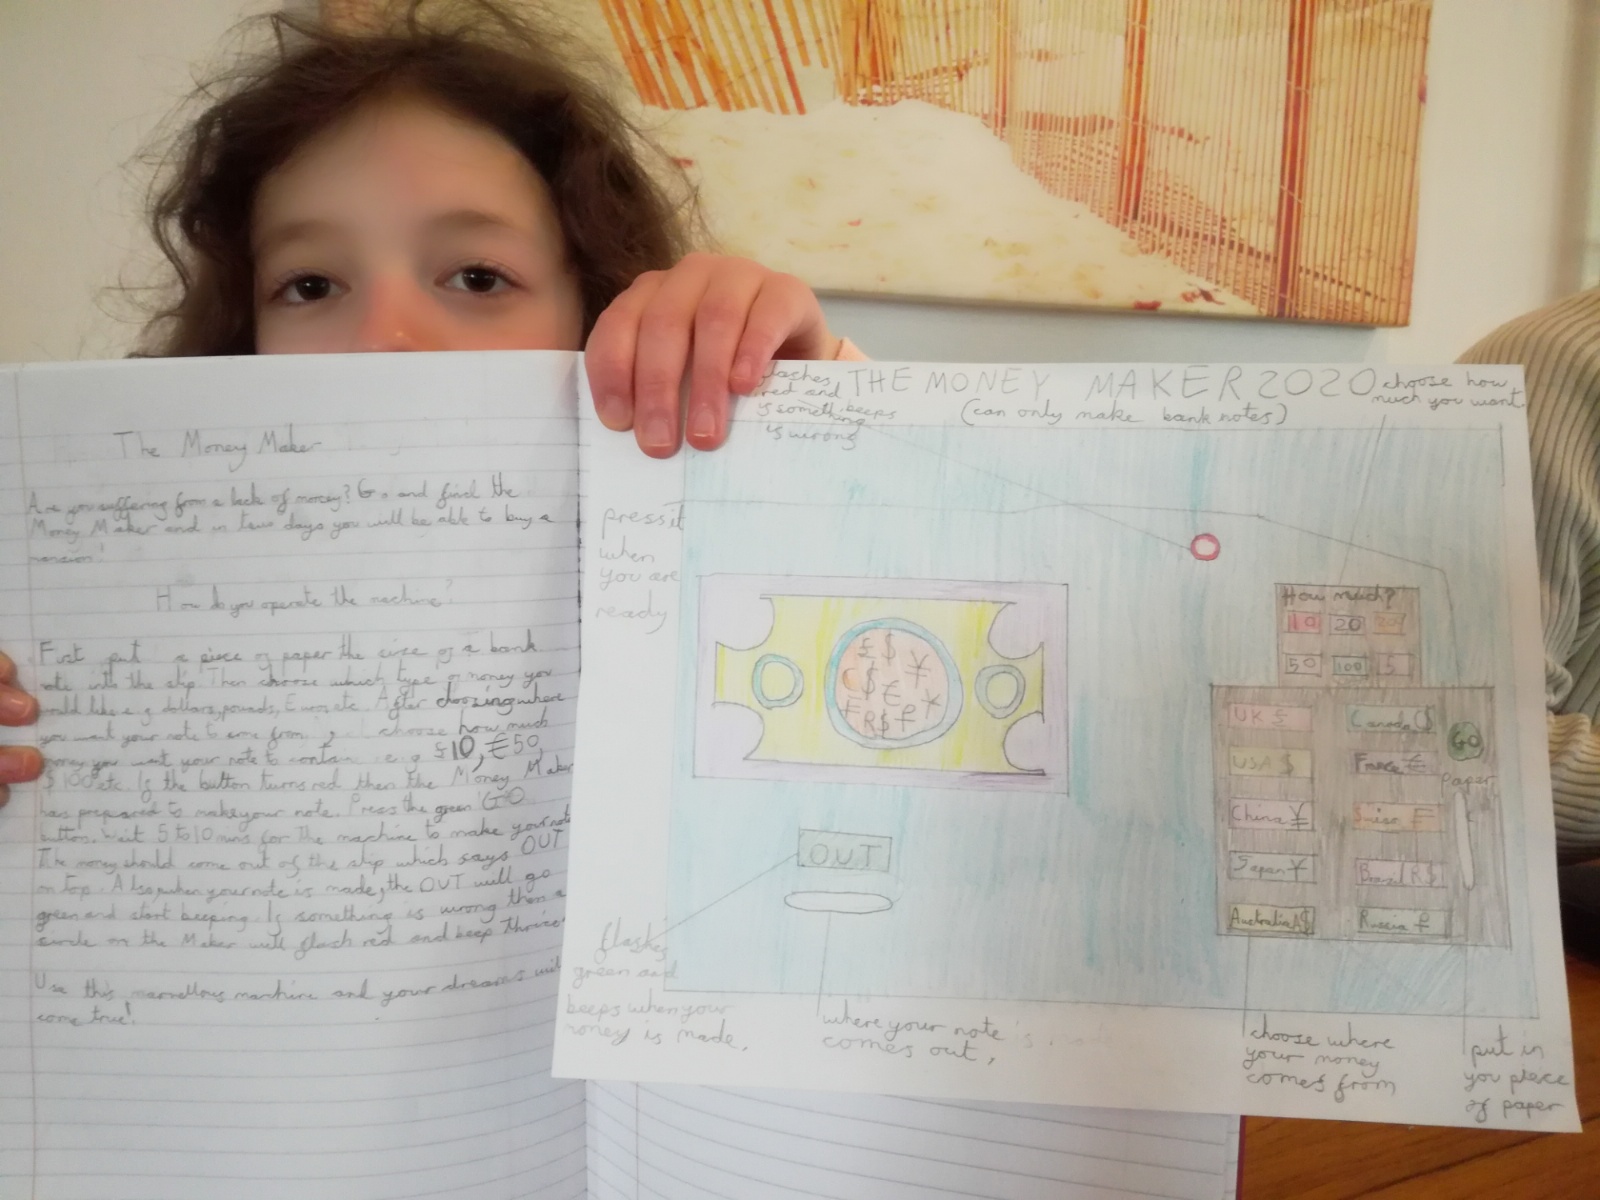 The Money Maker
Are you suffering from a lack of money? Go and find the
Money Maker and in two days you will be able to buy a
mansion!
How do you operate the machine?
First put a piece of paper the size of a bank
note into the slip. Then choose which type of money you
would like e.g dollars, pounds, Euros etc. After choosing where
you want your note to come from, choose how much
money you want your note to contain e.g £10, €50,
$100 etc. If the button turns red then the Money Maker
has prepared to make your note. Press the green 'GO'
button. Wait 5 to 10 mins for the machine to make your note
The money should come out of the slip which says OUT
on top. Also when your note is made, the OUT will go
green and start beeping. If something is wrong then a
circle on the Maker will flash red and beep thrice
Use this marvellous machine and your dreams will
come true!
THE MONEY MAKER 2020
(can only make bank notes)
flashes
red and beeps
if something
is wrong
choose how
much you want.
press it
when
you are
ready
How much?
10 20
50 100 5
UK £ Canada $
USA $ France €
China ¥ Suisse F
Japan ¥ Brazil R$
Australia A$ Russia ₽
GO
Paper
£ $ ¥
$ €
R$ ₽
OUT
flashes
green and
beeps when your
money is made.
where your note is made
comes out,
choose where
your money
comes from
put in
you piece
of paper